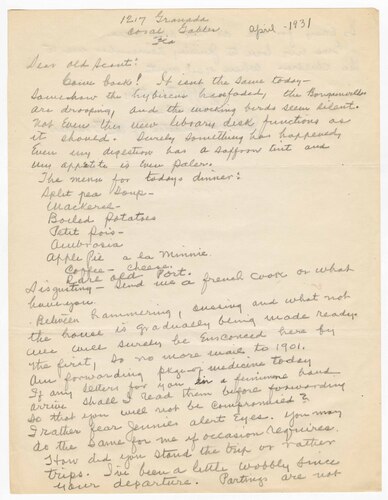 1217 Granada
Coral Gables
Fla
April - 1931
Dear Old Scout:
Come back! It isnt the same today-
Somehow the hybiscus have faded, the Bougainvillea
are drooping, and the mocking birds seem silent.
Not even the new library desk functions as
it should. Surely something has happened
Even my digestion has a saffron tint and
my appetite is even paler.
The menu for todays dinner:
Split pea Soup-
Mackerel-
Boiled Potatoes
Petit Pois-
Ambrosia
Apple Pie a la Minnie.
Coffee - cheese.
Rare old Port.
Disgusting - Send me a french cook or what
have you.
Between hammering, and what not
the house is gradually being made ready.
We will surely be Ensconced here by
the first, so no more mail to 1901.
Am forwarding pkge of medicine today
If any letters for you in a feminine hand
arrive shall I read them before forwarding
so that you will not be compromised?
I rather fear Jennies alert Eyes. You may
do the same for me if occasion requires.
How did you stand the trip or rather
trips. I've been a little wobbly since
your departure. Partings are not